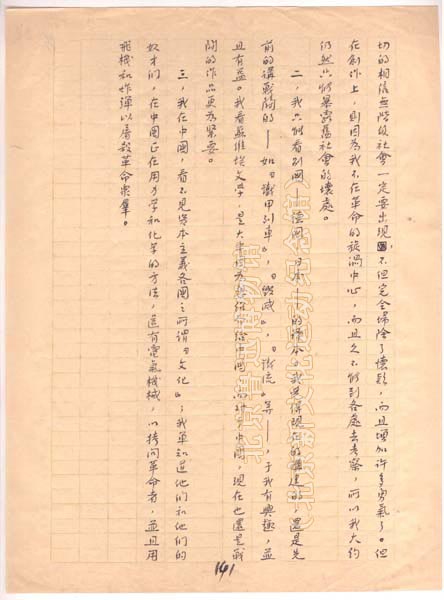 切的相信無階級社會一定要出現，不但完全掃除了懷疑，而且增加許多勇氣了。但
在創作上，則因為我不在革命的旋渦中心，而且久不能到各處去考察，所以我大約
仍然只能暴露舊社會的壞處。
二，我只能看別國——德國，日本——的譯本。我覺得現在的講建設的，還是先
前的講戰鬭的——如《鐵甲列車》，《毀滅》，《鐵流》等——于我有興趣，並
且有益。我看蘇維埃文學，是大半因為想紹介給中國，而對于中國，現在也還是戰
鬭的作品更為緊要。
三，我在中國，看不見資本主義各國之所謂“文化”；我單知道他們和他們的
奴才們，在中國正在用力學和化學的方法，還有電氣機械，以拷問革命者，並且用
飛機和炸彈以屠殺革命羣衆。
141
北京鲁迅博物馆
（北京新文化运动纪念馆）